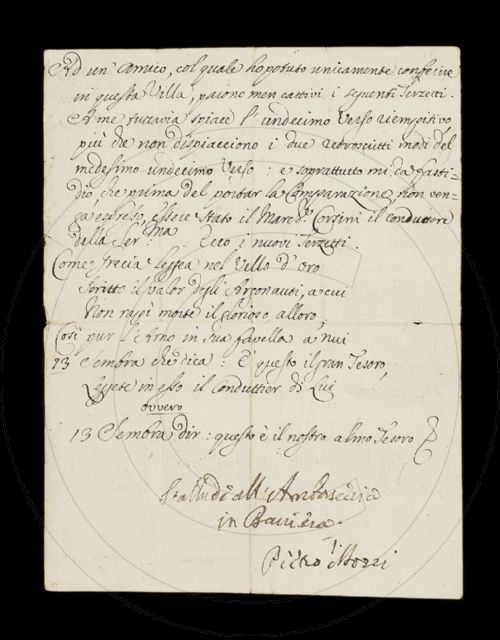 Ad un' Amico, col quale ho potuto unicamente conferire
in questa Villa, paiono men cattivi i seguenti Terzetti.
A me tuttavia spiace l' undecimo Verso riempitivo
più che non dispiacciono i due retroscritti modi del
medesimo undecimo Verso: e soprattutto mi dà fasti-
dio, che prima del portar la Comparazione, non ven-
ga espresso, essere stato il March.e Corsini il conduttore
della Ser.ma Ecco i nuovi Terzetti.
Come frecia lessea nel Vello d'oro
Scritto il valor degli Argonauti, a cui
Non rapì morte il glorioso alloro,
Così pur l'Arno in sua favella a nui
13 Sembra che dica: E' questo il gran Tesoro,
Leggete in esso il Conduttier di Lui
ovvero
13 Sembra dir: questo è il nostro almo Tesoro
Si allude all' Ambasceria
in Baviera.
Pietro